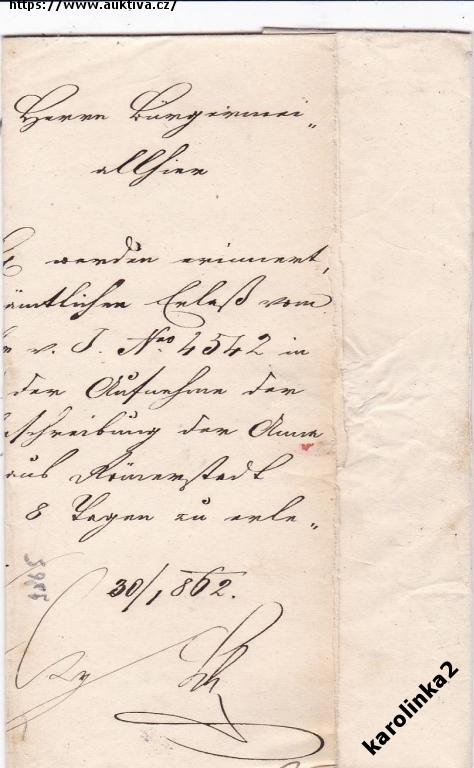 https://www.auktiva.cz/
Herrn Bürgermei„
allhier
werden erinnert,
ämtlichen Erlaß vom
v. J. Nro 4542 in
der Aufnahme der
schreibung der Anna
aus Römerstadt
8 Tagen zu erle„
30/1 862.
karolinka2